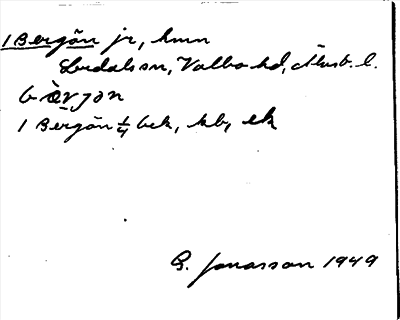 1 Bergön jr, hmn
Lerdals sn, Valbo hd, Älvsb. l.
bærjön
1 Bergön 1/4 bek, kb, ek
G. Jonasson 1949